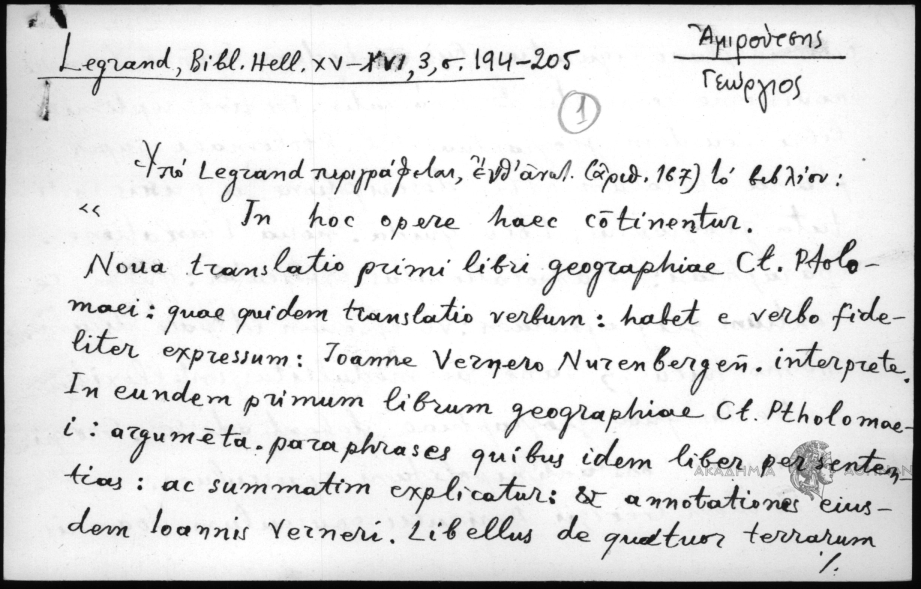 Ἀμιρούτσης
Γεώργιος
Legrand, Bibl. Hell. XV–XVI, 3, σ. 194–205
1
Ὑπό Legrand περιγράφεται, ἔνθ' ἀνωτ. (ἀριθ. 167) τό βιβλίον:
« In hoc opere haec cōtinentur.
Noua translatio primi libri geographiae Cl. Ptolo-
maei: quae quidem translatio verbum: habet e verbo fide-
liter expressum: Ioanne Vernero Nurenbergeñ. interprete.
In eundem primum librum geographiae Cl. Ptholomae-
i: argumēta. paraphrases quibus idem liber per senten-
tias: ac summatim explicatur: & annotationes eius-
dem Ioannis Verneri. Libellus de quatuor terrarum
./.
ΑΚΑΔΗΜΙΑ ΑΘΗΝΩΝ